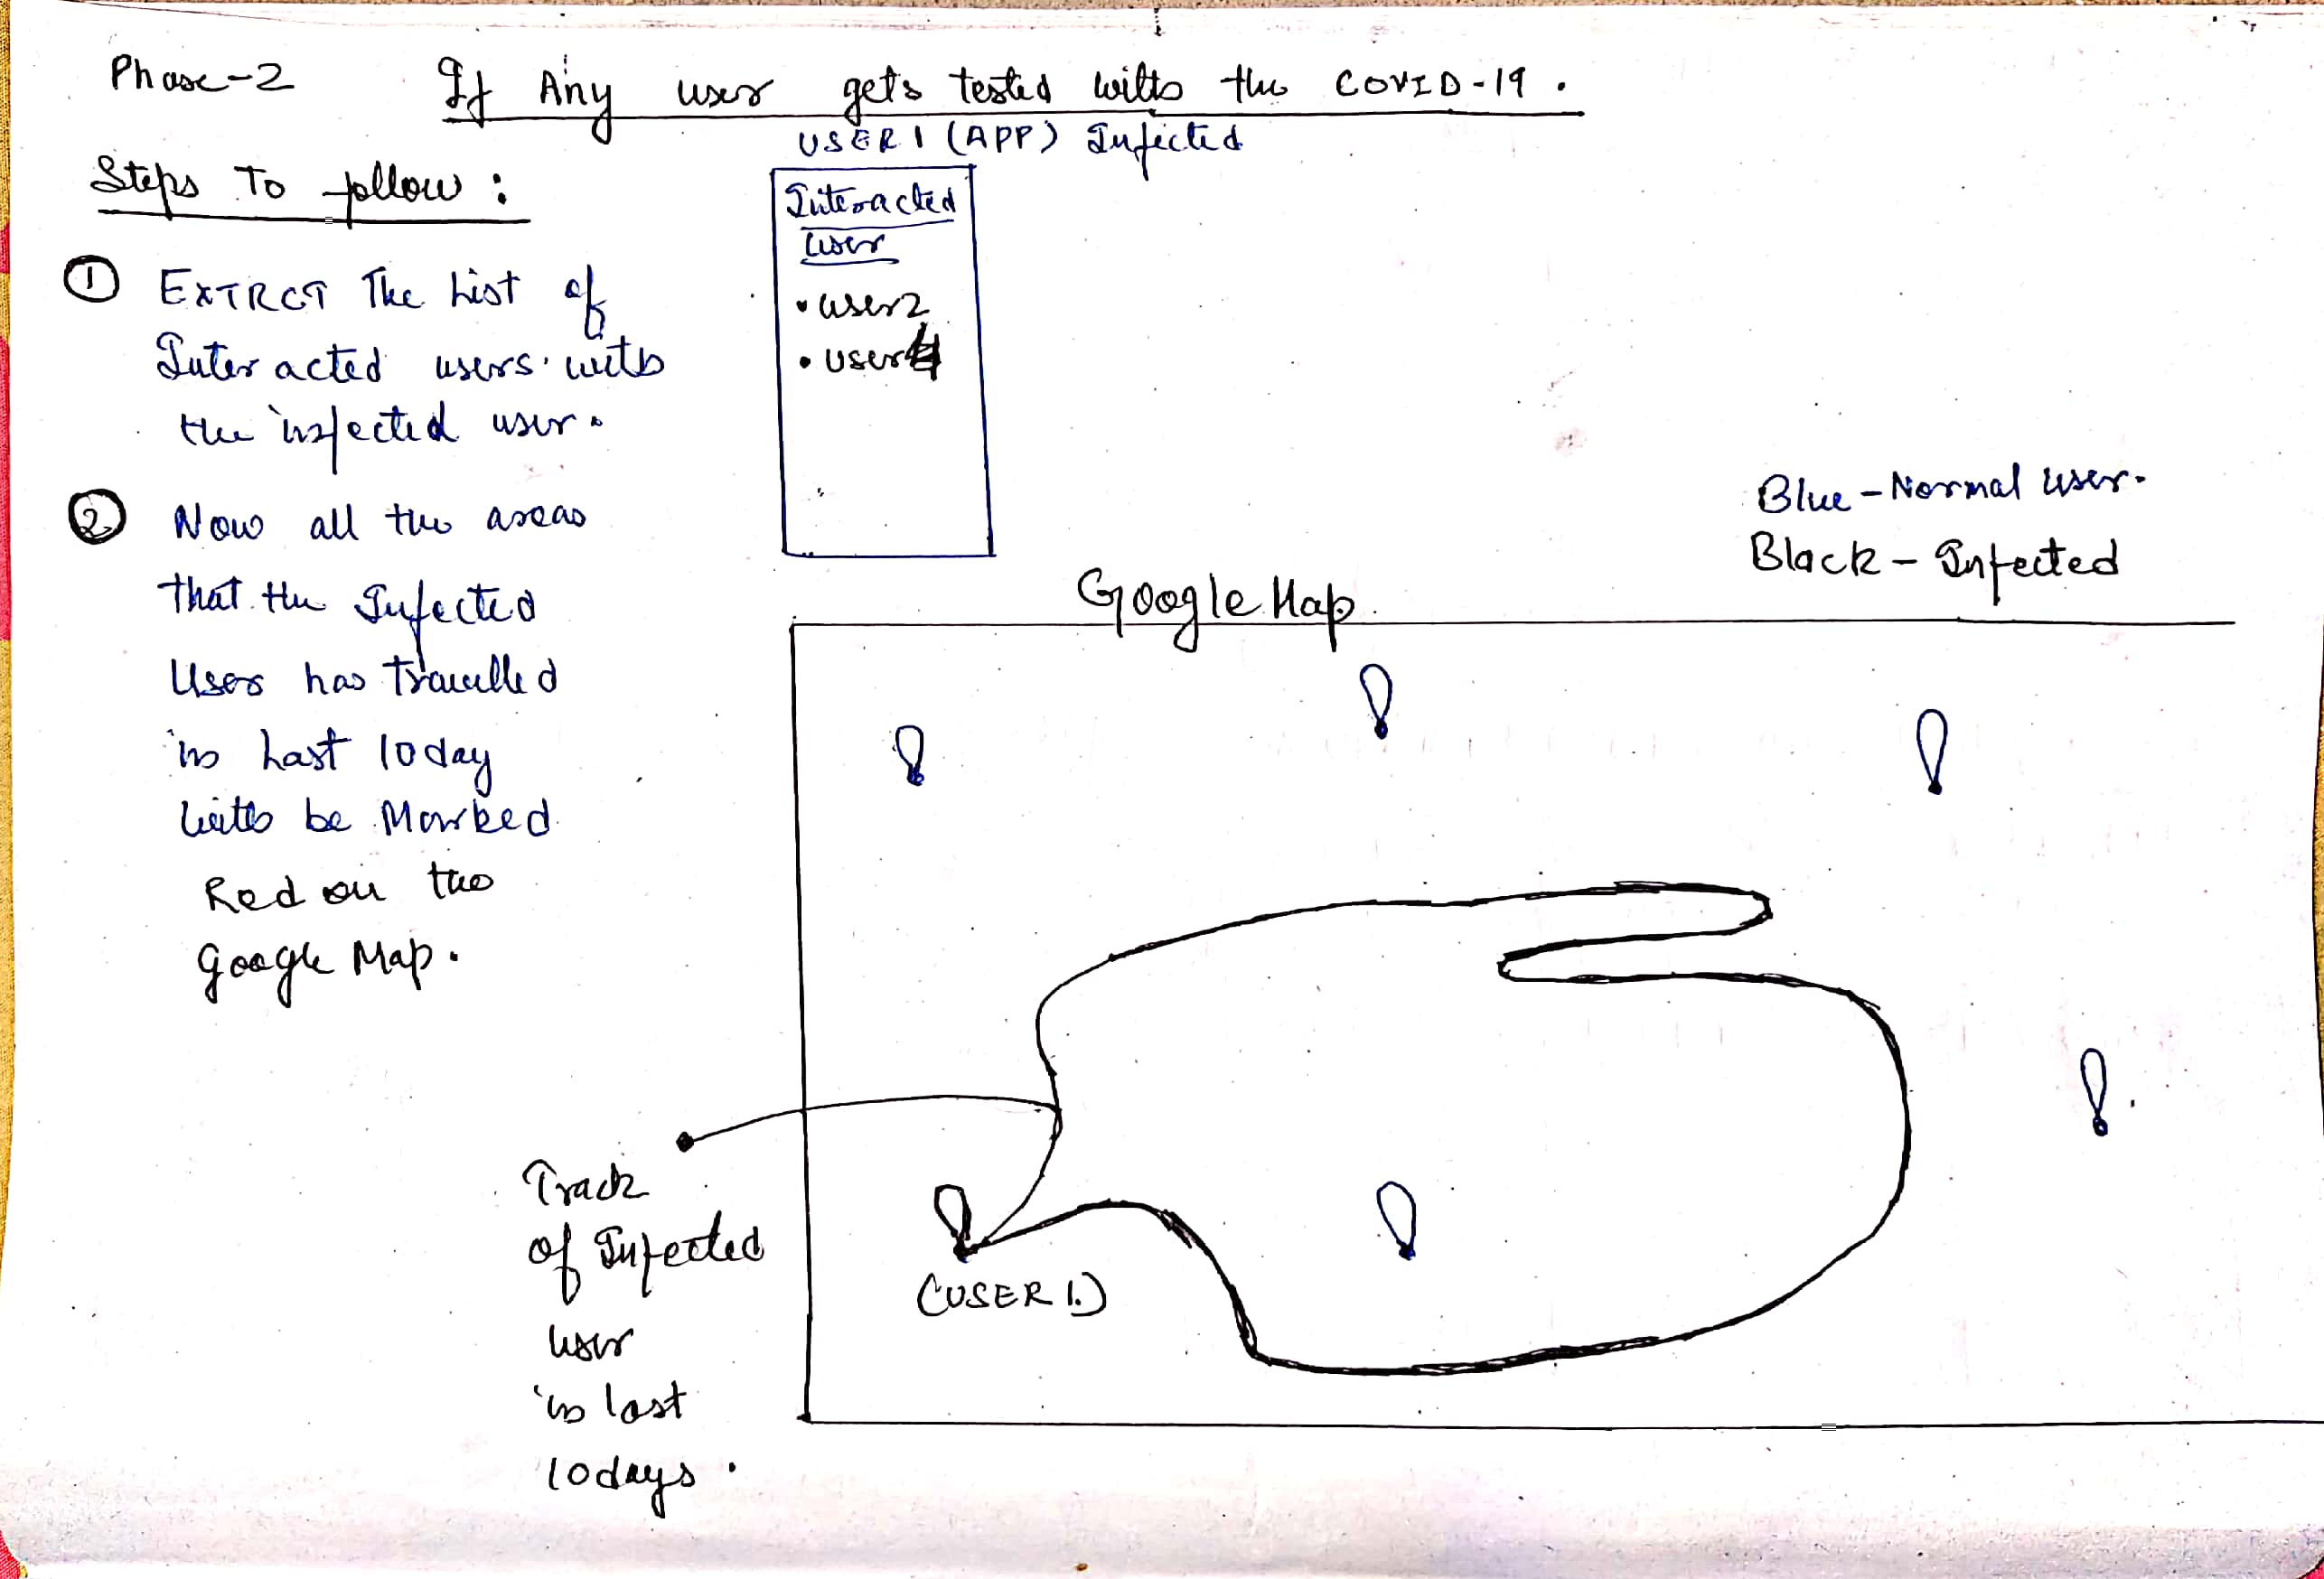 Phase-2
If Any user gets tested with the COVID-19.
USER 1 (APP) Infected
Steps To follow :
① EXTRCT The List of
Interacted users with
the infected user.
② Now all the areas
that the Infected
User has Travelled
in Last 10day
with be Marked
Red on the
Google Map.
Interacted
User
• user2
• user4
Blue - Normal User.
Black - Infected
Google Map
Track
of Infected
user
in last
10days.
(USER 1.)